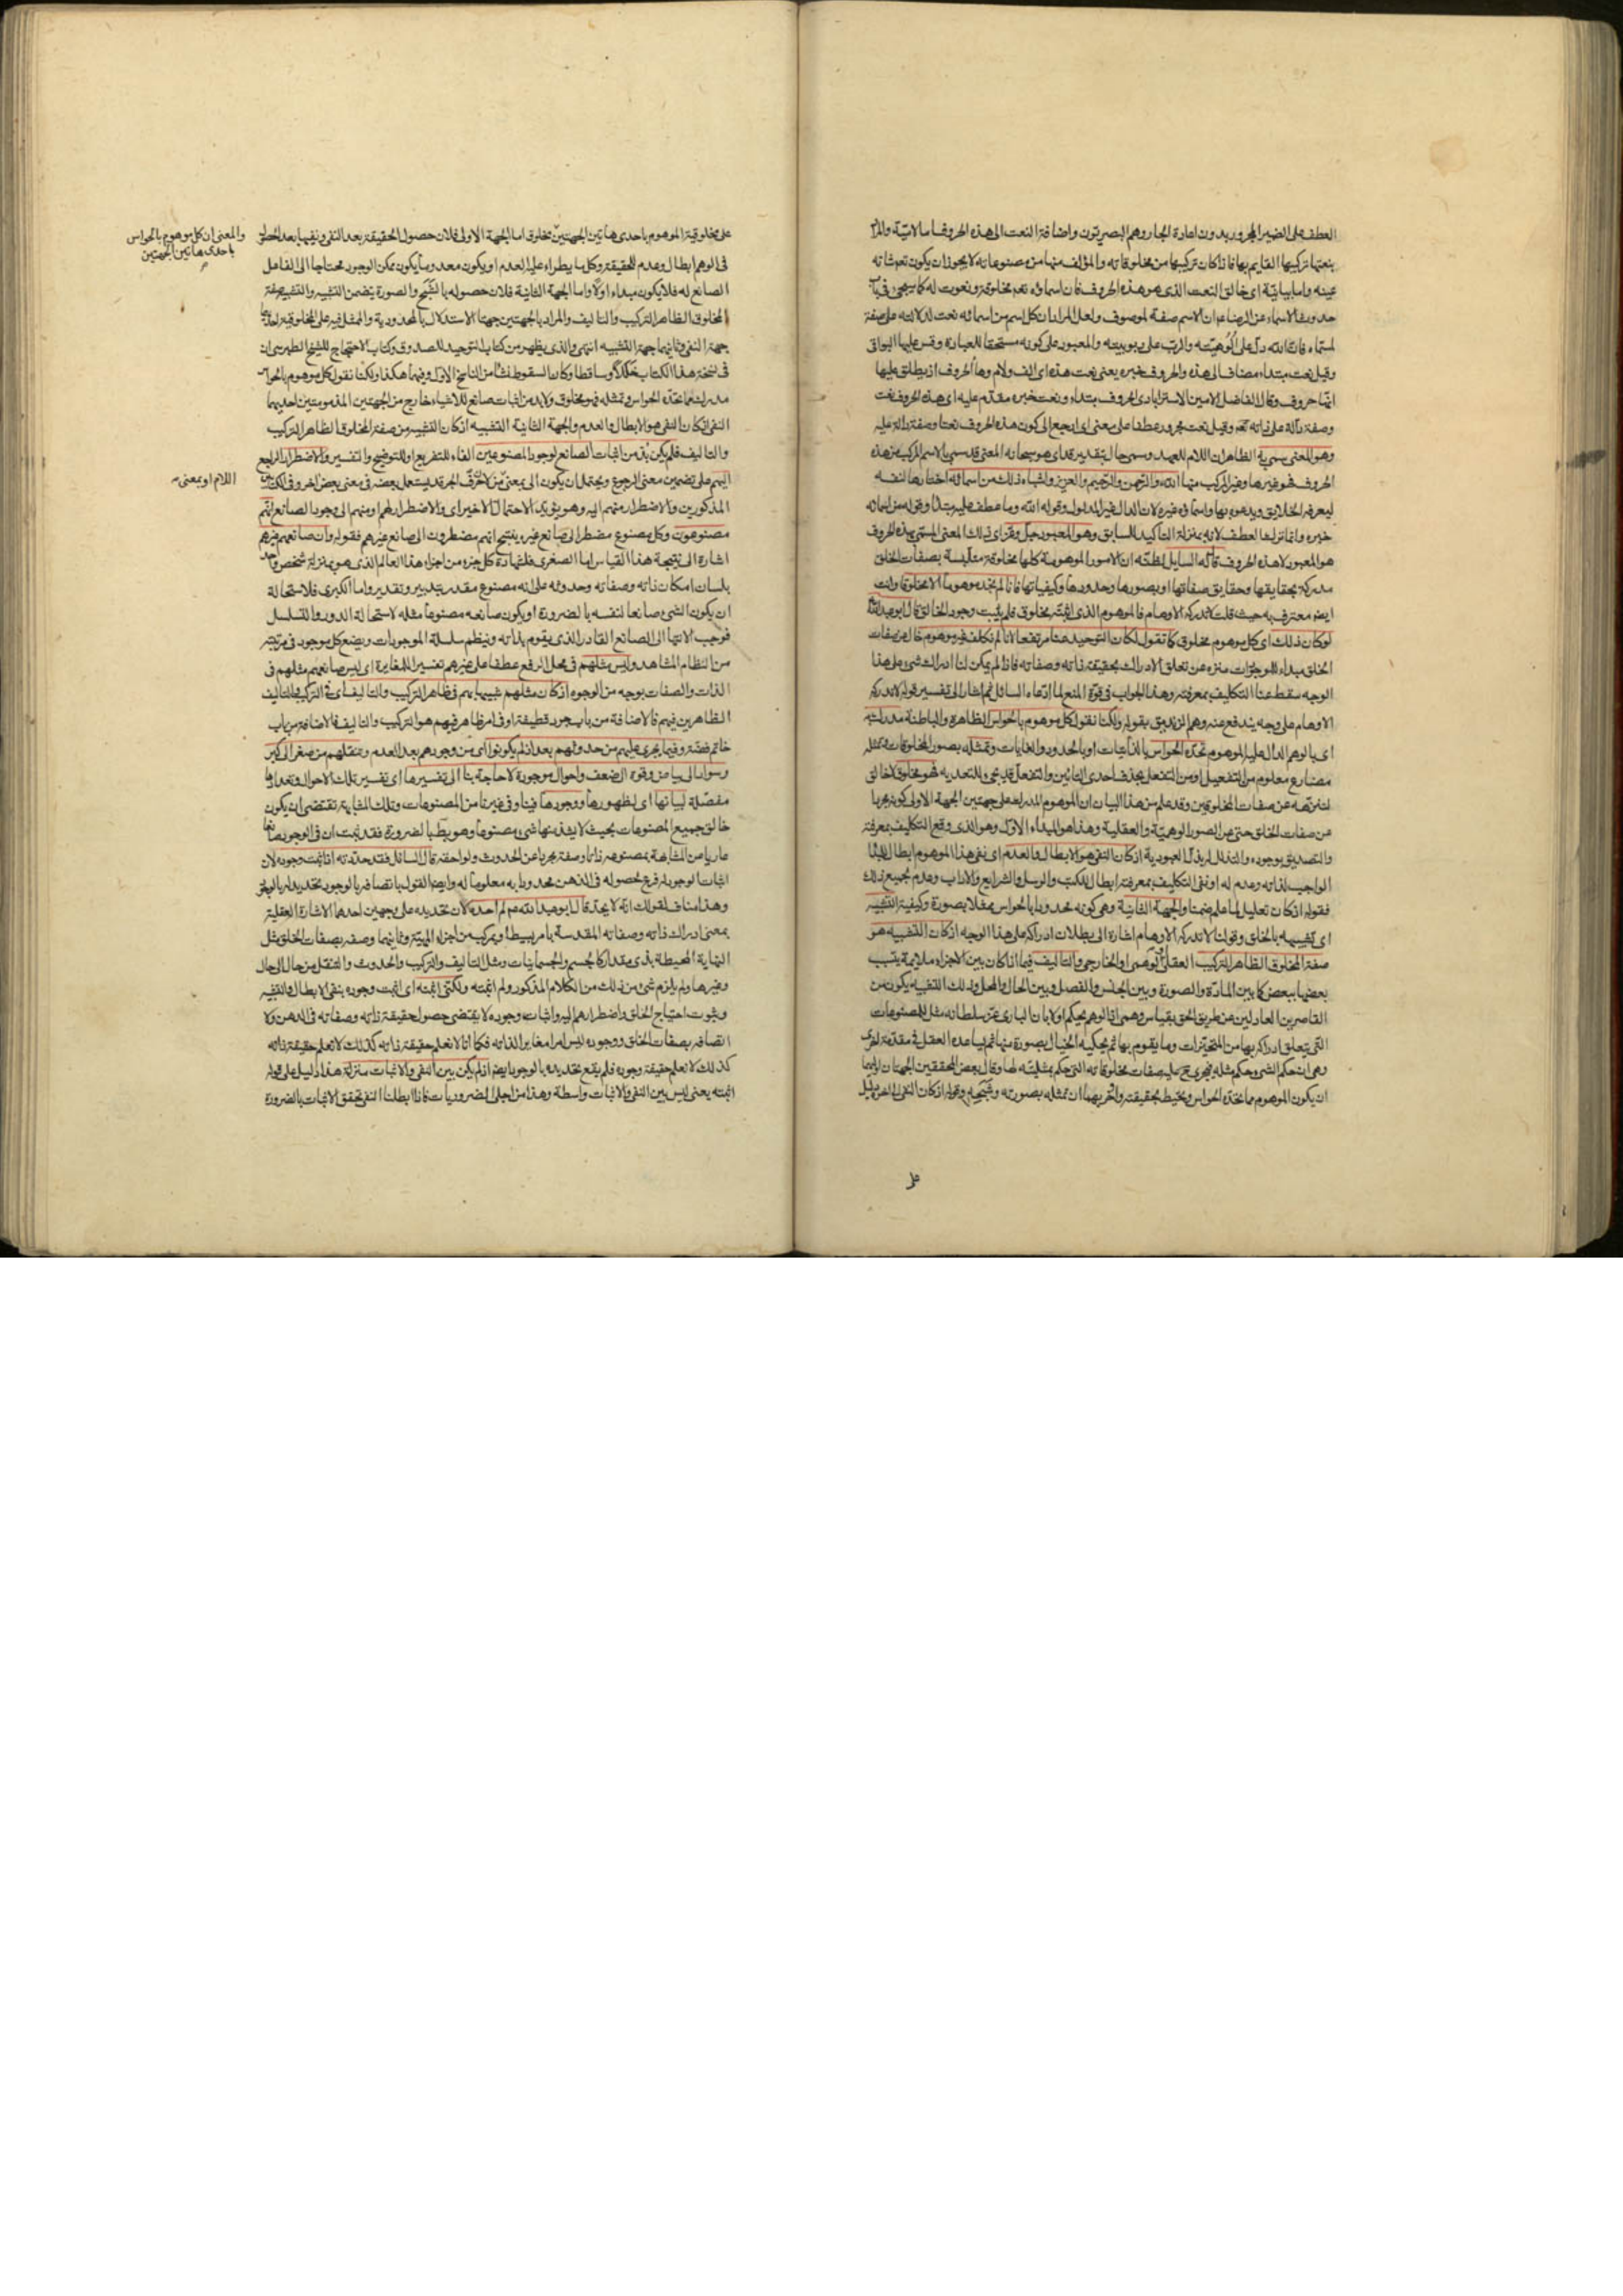 العطف على الضمير المجرور بدون اعادة الجار وهم البصريون واضافة النعت الى هذه الحروف اما لامية والمراد
بنعتها تركيبها القايم بها فاذا كان تركيبها من مخلوقاته والمؤلف منها من مصنوعاته لا يجوز ان يكون نعم ذاته
عينه واما بيانية اى خالق النعت الذى هو هذه الحروف فان اسماؤه نعم مخلوقة ونعوت له كما سيجئ فى باب
حدوث الاسماء عن الرضا ع ان الاسم صفة لموصوف ولعل المراد ان كل اسم من اسمائه نعت لدلالته على صفة
لمسماه فان الله دل على الوهيته والرب على ربوبيته والمعبود على كونه مستحقا للعبادة وقس عليها البواقى
وقيل نعت مبتداء مضاف الى هذه والحروف خبره يعنى نعت هذه اى الف ولام وها الحروف اذ يطلق عليها
انها حروف وقال الفاضل الامين الاسترابادى الحروف مبتداء ونعت خبره مقدم عليه اى هذه الحروف نعت
وصفة دالة على ذاته تعه وقيل نعت مجرور عطفا على معنى اى ارجع الى كون هذه الحروف نعتا وصفة دالة عليه
وهو المعنى سمى به الظاهر ان اللام للعهد وسمى حال بتقدير قد اى هو سبحانه المعنى قد سمى بالاسم المركب من هذه
الحروف فهو غيرها وغير المركب منها الله والرحمن والرحيم والعزيز واشباه ذلك من اسمائه اختارها لنفسه
ليعرفه الخلايق ويدعوه بها واسماؤه غيره لان الدال غير المدلول وقوله الله وما عطف عليه مبتداء وقوله من اسمائه
خبره وانما ترك العطف لانه بمنزلة التاكيد للسابق وهو المعبود جل وعز اى ذلك المعنى المسمى بهذه الحروف
هو المعبود لا هذه الحروف قال له السايل لظنه ان الامور الموهومة كلها مخلوقة متلبسة بصفات الخلق
مدركة بحقايقها وحقايق صفاتها او بصورها وحدودها وكيفياتها فانا لم نجد موهوما الا مخلوقا وانت
ايضا معترف به حيث قلت لا تدركه الاوهام فالموهوم الذى اثبته مخلوق فلم يثبت وجود الخالق قال ابو عبد الله ع
لو كان ذلك اى كل موهوم مخلوق كما تقول لكان التوحيد عنا مرتفعا لانا لم نكلف غير موهوم خال عن صفات
الخلق مبداء للموجودات منزه عن تعلق الادراك بحقيقة ذاته وصفاته فاذا لم يمكن لنا ادراك شئ على هذا
الوجه سقط عنا التكاليف بمعرفته وهذا الجواب فى قوة المنع لما ادعاه السائل ثم اشار الى تفسير قوله لا تدركه
الاوهام على وجه يندفع عنه وهم الزنديق بقوله ولكنا نقول كل موهوم بالحواس الظاهرة والباطنة مدرك به
اى بالوهم الدال عليه الموهوم تحده الحواس بالذاتيات او بالحدود والغايات وتمثله بصور المخلوقات وتمثله
مضارع معلوم من التفعيل او من التفعل بحذف احدى التائين والتفعل قد يجئ للتعدية فهو مخلوق لا خالق
لتنزهه عن صفات المخلوقين وقد علم من هذا البيان ان الموهوم المدرك على جهتين الجهة الاولى كونه مجردا
عن صفات الخلق حتى عن الصور الوهمية والعقلية وهذا هو المبداء الاول وهو الذى وقع التكليف بمعرفته
والتصديق بوجوده والتذلل له بذل العبودية اذ كان النفى هو الابطال والعدم اى نفى هذا الموهوم ابطال للمبداء
الواجب لذاته وعدم له او نفى التكليف بمعرفته ابطال للكتب والرسل والشرايع والاداب وعدم لجميع ذلك
فقوله اذ كان تعليل لما علم ضمنا والجهة الثانية وهى كونه محدودا بالحواس ممثلا بصورة وكيفية التشبيه
اى تشبيهه بالخلق وقولنا لا تدركه الاوهام اشارة الى بطلان ادراكه على هذا الوجه اذ كان التشبيه هو
صفة المخلوق الظاهر التركيب العقلى او الوهمى او الخارجى والتاليف فيما اذا كان بين الاجزاء ملايمة يتسبب
بعضها ببعض كما بين المادة والصورة وبين الجنس والفصل وبين الحال والمحل وذلك التشبيه يكون من
القاصرين العادلين عن طريق الحق بقياس وهمى اذ الوهم يحكم اولا بان البارى عز سلطانه مثل المصنوعات
التى يتعلق ادراكه بها من المتحيزات وما يقوم بها ثم يحكيه الخيال بصورة منها ثم يساعده العقل فى مقدمة اخرى
وهى ان حكم الشئ وحكم مثله فيجرى ح عليه صفات مخلوقاته التى حكم بمثليته لها وقال بعض المحققين الجهتان احديهما
ان يكون الموهوم مما تحده الحواس وتحيط بحقيقته واخريهما ان تمثله بصورته وشبحه وقوله اذ كان النفى الى اخره دليل
على
على مخلوقية الموهوم باحدى هاتين الجهتين مخلوق اما الجهة الاولى فلان حصول الحقيقة بعد النفى ونفيها بعد الحصول
والمعنى ان كل موهوم بالحواس
باحدى هاتين الجهتين
فى الوهم ابطال وعدم للحقيقة وكل ما يطراء عليه العدم او يكون معدوما يكون ممكن الوجود محتاجا الى الفاعل
الصانع له فلا يكون مبداء اولا واما الجهة الثانية فلان حصوله بالشبح والصورة يتضمن التشبيه والتشبيه صفة
المخلوق الظاهر التركيب والتاليف والمراد بالجهتين جهتا الاستدلال بالمحدودية والممثل فيه على المخلوقية احديهما
جهة النفى وثانيهما جهة التشبيه انتهى والذى يظهر من كتاب التوحيد للصدوق وكتاب الاحتجاج للشيخ الطبرسى ان
فى نسخة هذا الكتاب خللا وساقطا وكان السقوط نشأ من الناسخ الاول وفيهما هكذا ولكنا نقول كل موهوم بالحواس
مدرك فما تحده الحواس وتمثله فهو مخلوق ولا بد من اثبات صانع للاشياء خارج من الجهتين المذمومتين احديهما
النفى اذ كان النفى هو الابطال والعدم والجهة الثانية التشبيه اذ كان التشبيه من صفة المخلوق الظاهر التركيب
والتاليف فلم يكن بد من اثبات الصانع لوجود المصنوعين الفاء للتفريع او للتوضيح والتفسير والاضطرار الراجع
اليهم على تضمين معنى الرجوع ويحتمل ان يكون الى بمعنى من لان حرف الجر قد يستعمل بعضه فى معنى بعض اخر وفى الكتابين
اللام او بمعنى
المذكورين والاضطرار منهم اليه وهو يؤيد الاحتمال الاخير اى والاضطرار لهم او منهم الى وجود الصانع انهم
مصنوعون وكل مصنوع مضطر الى صانع غيره ينتج انهم مضطرون الى صانع غيرهم فقوله وان صانعهم غيرهم
اشارة الى نتيجة هذا القياس اما الصغرى فلشهادة كل جزء من اجزاء هذا العالم الذى هو بمنزلة شخص واحد
بلسان امكان ذاته وصفاته وحدوثه على انه مصنوع مقدر بتدبير وتقدير واما الكبرى فلاستحالة
ان يكون الشئ صانعا لنفسه بالضرورة او يكون صانعه مصنوعا مثله لاستحالة الدور والتسلسل
فوجب الانتها الى الصانع القادر الذى يقوم بذاته وينظم سلسلة الموجودات ويضع كل موجود فى مرتبته
من النظام المشاهد وليس مثلهم فى محل الرفع عطفا على غيرهم تفسير اللمغايرة اى ليس صانعهم مثلهم فى
الذات والصفات بوجه من الوجوه اذ كان مثلهم شبيها بهم فى ظاهر التركيب والتاليف اى فى التركيب والتاليف
الظاهرين فيهم فالاضافة من باب جرد قطيفة او فى امر ظاهر فيهم هو التركيب والتاليف فالاضافة من باب
خاتم فضة وفيما يجرى عليهم من حدوثهم بعد اذ لم يكونوا اى من وجودهم بعد العدم وتنقلهم من صغر الى كبر
وسواد الى بياض وقوة الى ضعف واحوال موجودة لا حاجة بنا الى تفسيرها اى تفسير تلك الاحوال وتعدادها
مفصلة لبيانها اى لظهورها ووجودها فينا وفى غيرنا من المصنوعات وتلك المشابهة تقتضى ان يكون
خالق جميع المصنوعات بحيث لا يشذ منها شئ مصنوعا وهو بط بالضرورة فقد ثبت ان فى الوجود صانعا
عاريا من المشابهة بمصنوعه ذاتا وصفة مجردا عن الحدوث ولواحقه قال السائل فقد حددته اذ اثبت وجوده لان
اثبات الوجود له فرع لحصوله فى الذهن محدودا به معلوما له وايضا القول باتصافه بالوجود تحديد له بالوجود
وهذا مناف لقولك انه لا يحد قال ابو عبد الله ع لم احده لان تحديده على وجهين احدهما الاشارة العقلية
بمعنى ادراك ذاته وصفاته المقدسة بامر بسيط او بمركب من اجزاء المهية وثانيهما وصفه بصفات الخلق مثل
النهاية المحيطة بذى مقدار كالجسم والجسمانيات ومثل التاليف والتركيب والحدوث والتنقل من حال الى حال
وغيرها ولم يلزم شئ من ذلك من الكلام المذكور ولم اثبته ولكنى اثبته اى اثبت وجوده بنفى الابطال والتشبيه
وثبوت احتياج الخلق واضطرارهم اليه واثبات وجوده لا يقتضى حصول حقيقة ذاته وصفاته فى الذهن ولا
اتصافه بصفات الخلق ووجوده ليس امرا مغايرا لذاته فكما انا لا نعلم حقيقة ذاته كذلك لا نعلم حقيقة ذاته
كذلك لا نعلم حقيقة وجوده فلم يقع تحديده بالوجود ايضا اذ لم يكن بين النفى والاثبات منزلة هذا دليل على قوله
اثبته يعنى ليس بين النفى والاثبات واسطة وهذا من اجلى الضروريات فاذا ابطلنا النفى تحقق الاثبات بالضرورة